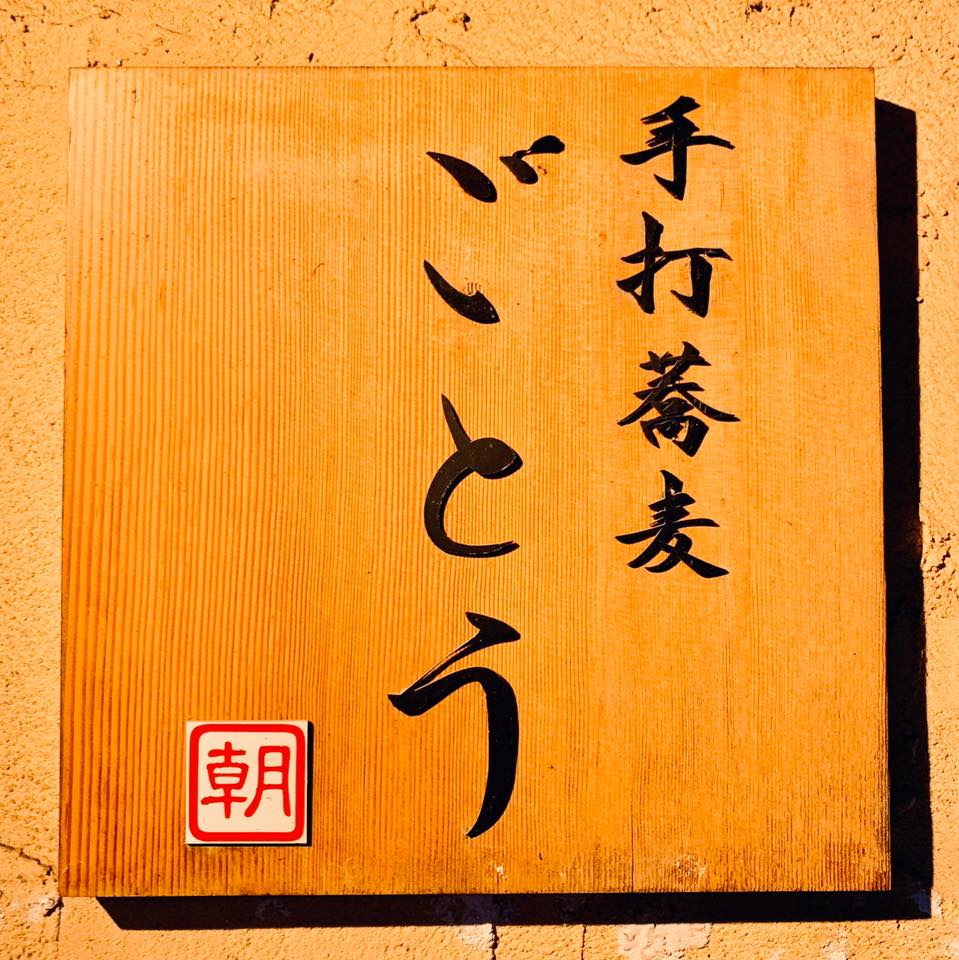 手打蕎麦
ごとう
朝